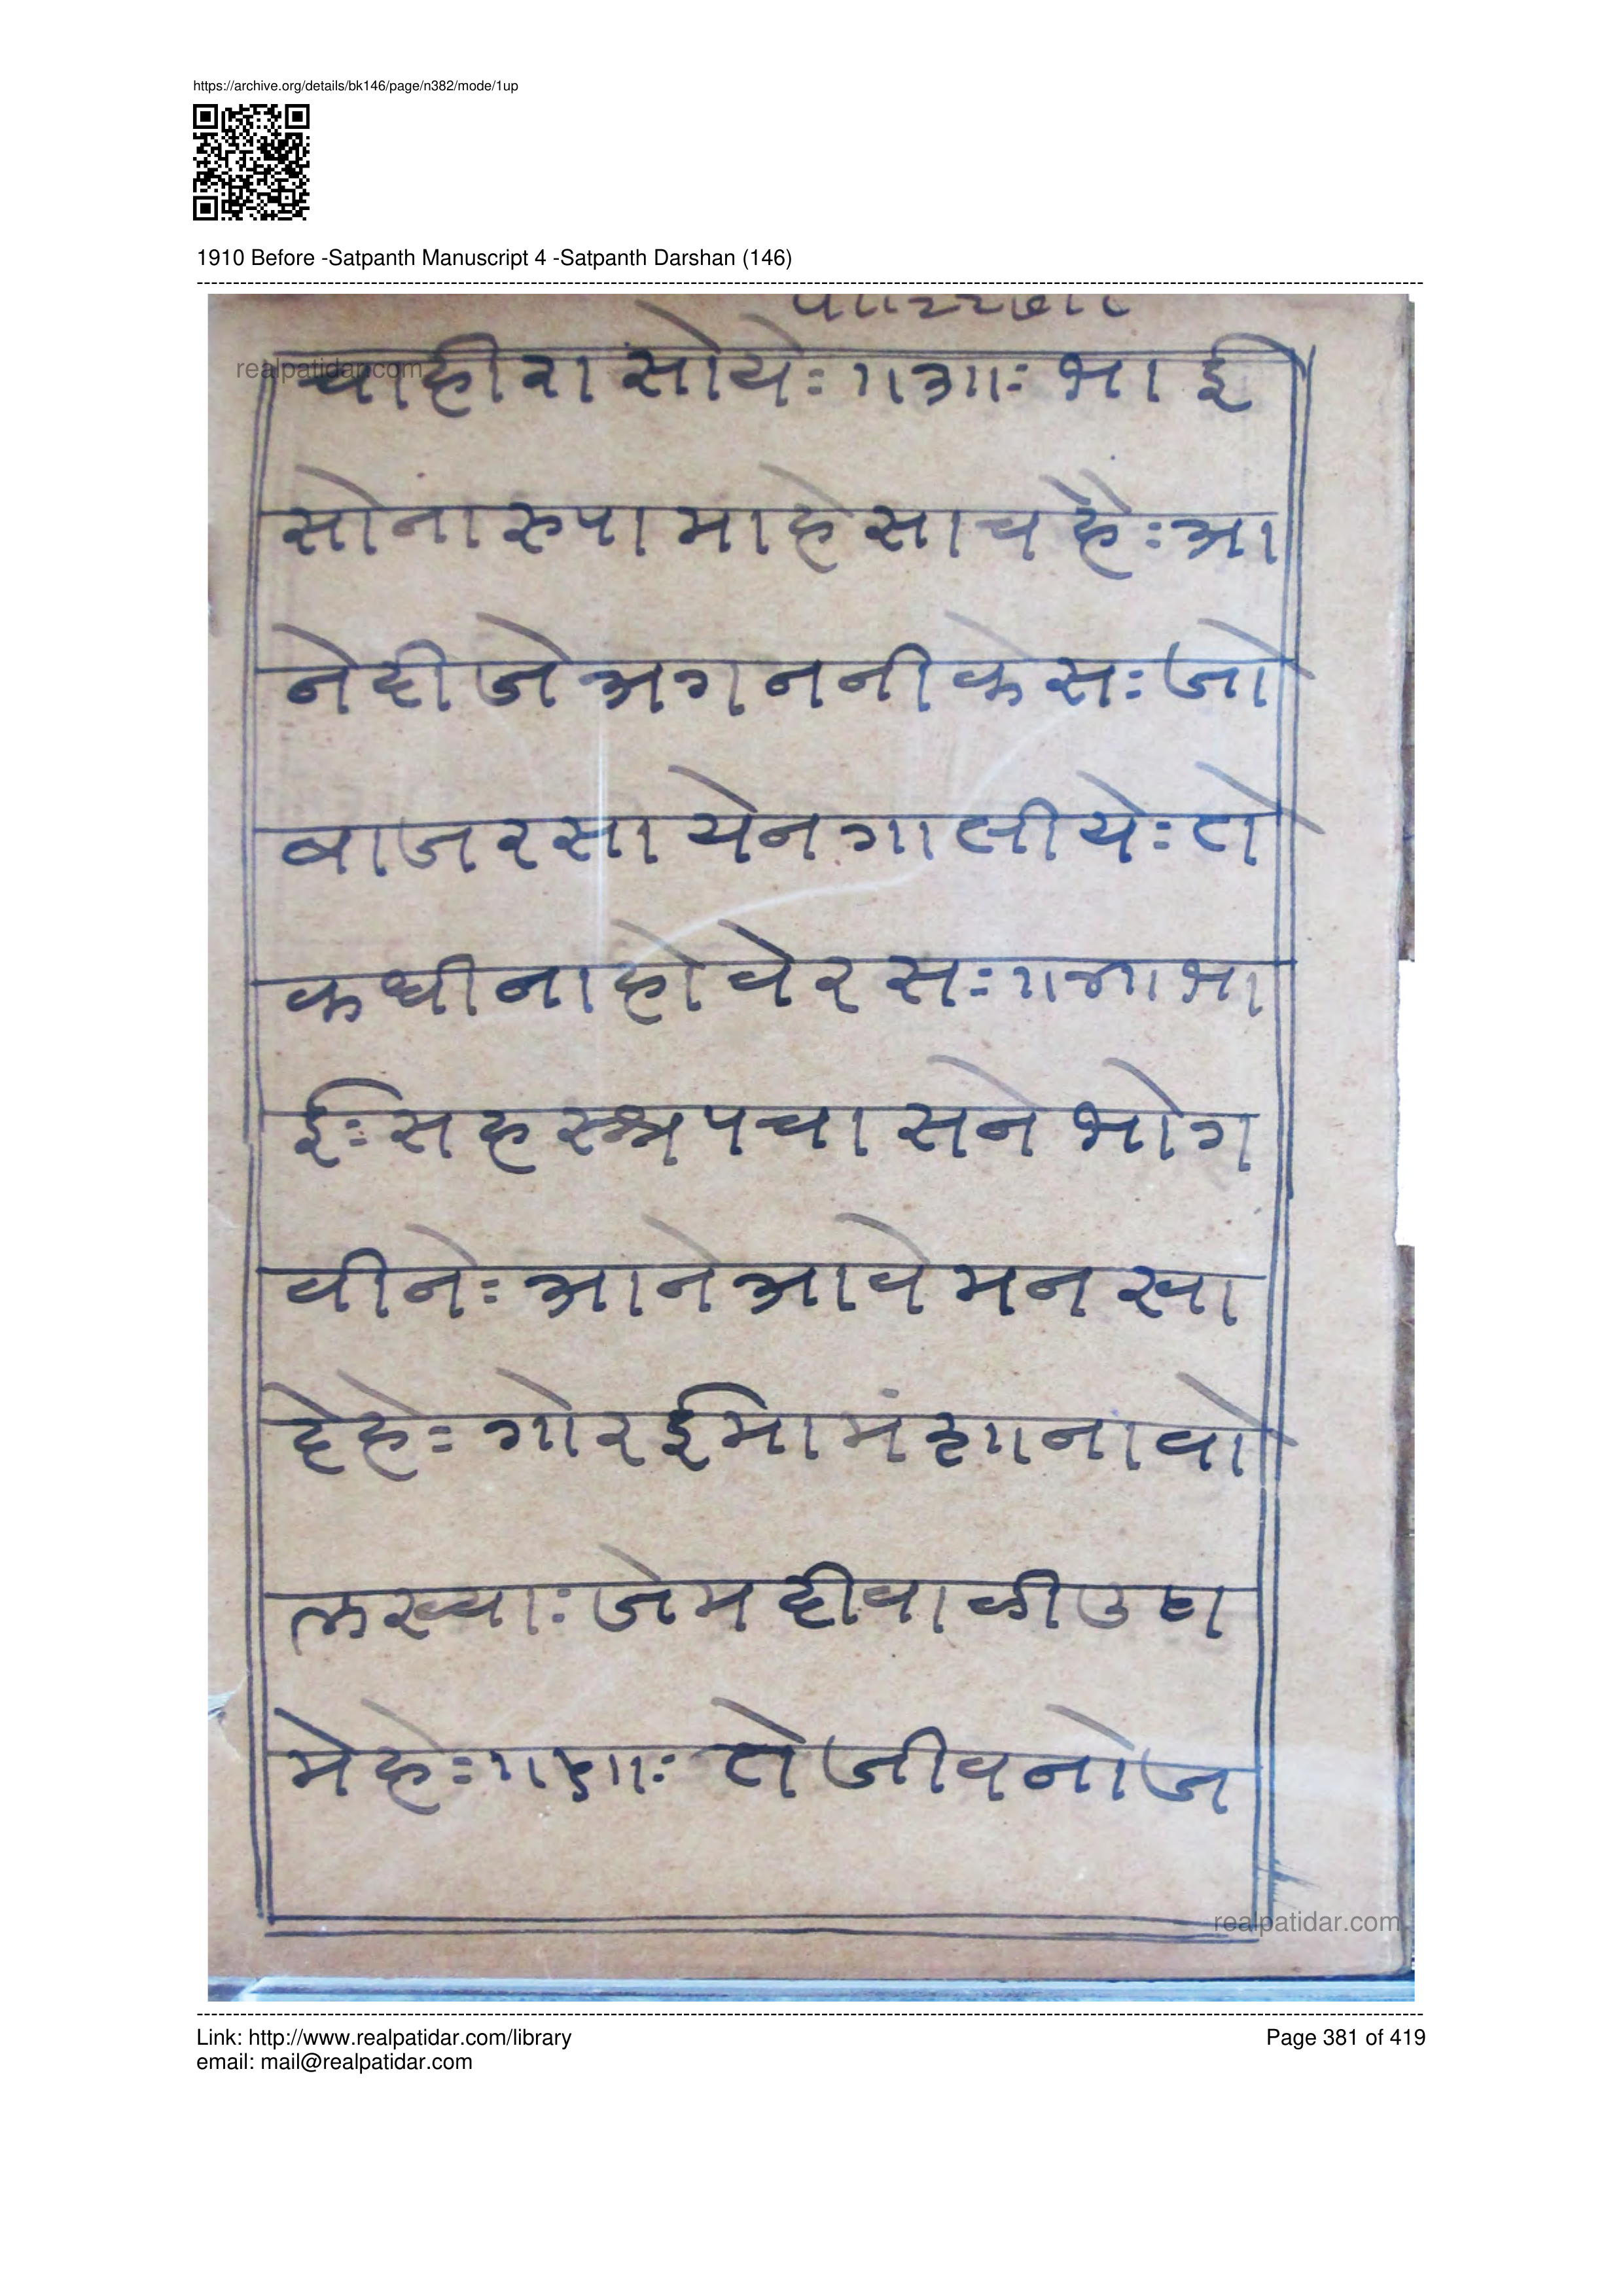 https://archive.org/details/bk146/page/n382/mode/1up
1910 Before -Satpanth Manuscript 4 -Satpanth Darshan (146)
realpatidar.com
चाहीरा सोये: ॥३॥: भाई
सोनारुपा माहे साच है: आ
ने दीजे अगननी केस: जो
बाजरसायेन गालीये: तो
कधी ना होवे रस: ॥४॥ भा
ई: सहस्त्र पचासने भोग
वीने: आने आवे मनखा
देहे: गोरईमा मंझा नावो
लख्या: जेम दीवाळी उघा
मेह: ॥५॥: ते जीवनो ज
realpatidar.com
Link: http://www.realpatidar.com/library
Page 381 of 419
email: mail@realpatidar.com